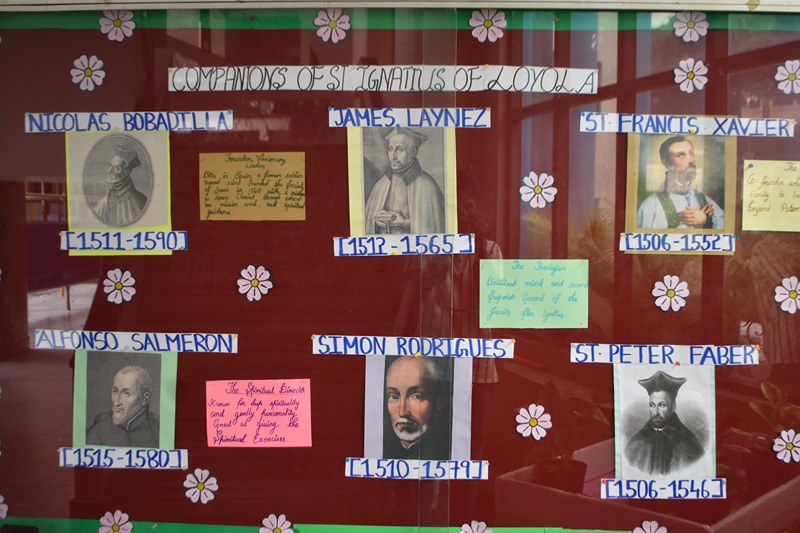 COMPANIONS OF ST IGNATIUS OF LOYOLA
NICOLAS BOBADILLA
[1511-1590]
Founder, Visionary
Born in Spain, a former soldier
turned saint founded the Society
of Jesus in 1540 with a
to serve Christ through
mission work, and spiritual
guidance
JAMES LAYNEZ
[1512-1565]
The Theologian
Brilliant mind and
Superior General of the
Jesuits after
ST. FRANCIS XAVIER
[1506-1552]
The
Co-founder
family to
beyond
ALFONSO SALMERON
[1515-1580]
The Spiritual Director
Known for deep spirituality
and gently personality
Great at giving the
Spiritual Exercises.
SIMON RODRIGUES
[1510-1579]
ST. PETER FABER
[1506-1546]